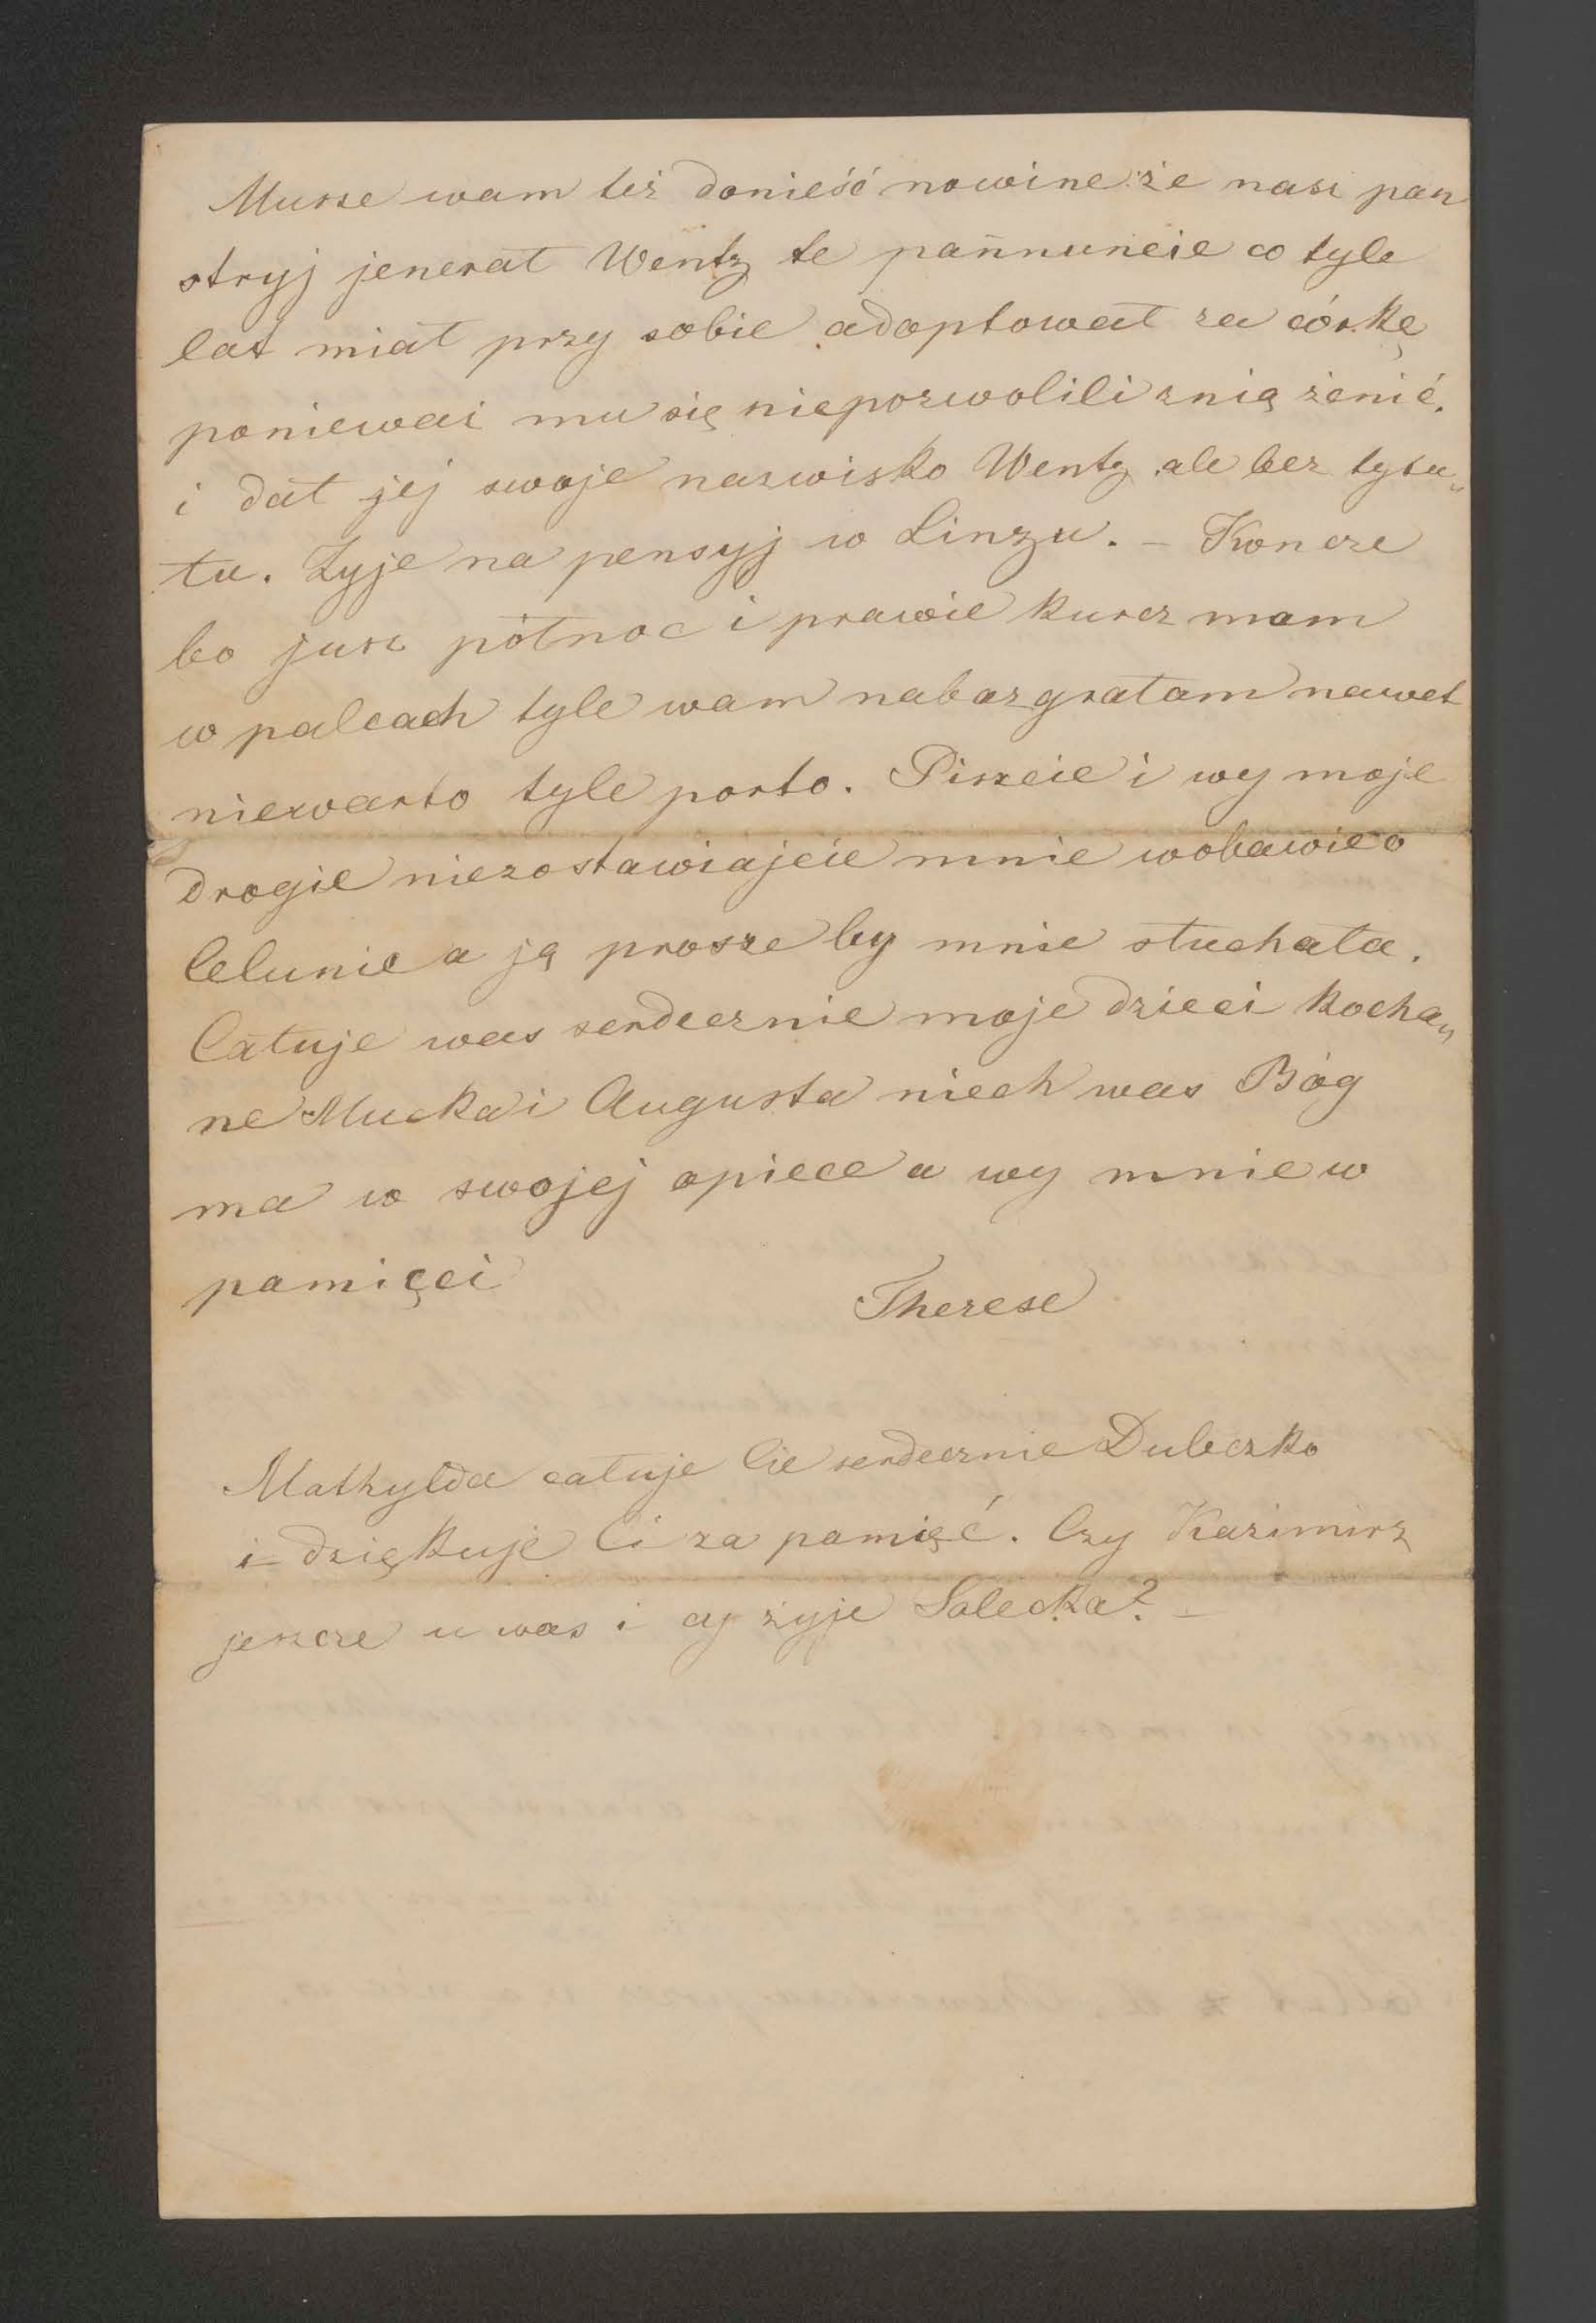 Musze wam też donieść nowine że nasz pan
stryj jenerał Wentz te pannuncie co tyle
lat miał przy sobie adoptował za córkę
poniewaz mu się niepozwolili znią żenić.
i dał jej swoje nazwisko Wentz ale bez tytu„
łu. Zyje na pensyj w Linzu. – Koncze
bo jusz północ i prawie kurcz mam
w palcach tyle wam nabazgrałam nawet
niewarto tyle porto. Piszcie i wy moje
drogie niezostawiajcie mnie wobawie o
Celunie a ją prosze by mnie słuchała.
Całuje was serdecznie moje dzieci kocha„
ne Mucka i Augusta niech was Bóg
ma w swojej opiece a wy mnie w
pamięci
Therese
Mathylda całuje Cie serdecznie Dubczko
i dziękuje Ci za pamięć. Czy Kazimirz
jeszcze u was i cy żyje Salecka? –